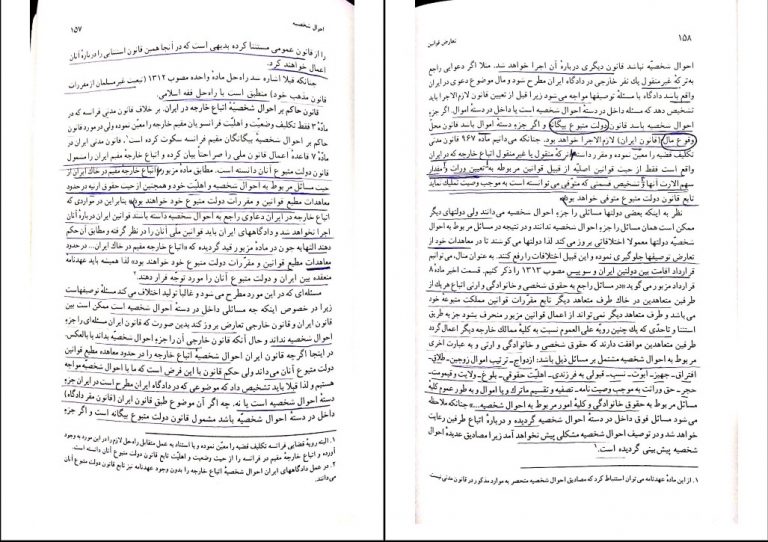 احوال شخصیه    ۱۵۷
را از قانون عمومی مستثنا کرده بدیهی است که در آنجا همین قانون استثنایی را دربارهٔ آنان
اعمال خواهند کرد.
چنانکه قبلا اشاره شد راه‌حل مادهٔ واحده مصوب ۱۳۱۲ (تبعیت غیرمسلمان از مقررات
قانون مذهب خود) منطبق است با راه‌حل فقه اسلامی.
قانون حاکم بر احوال شخصیهٔ اتباع خارجه در ایران. بر خلاف قانون مدنی فرانسه که در
مادهٔ ۳ فقط تکلیف وضعیت و اهلیت فرانسویان مقیم خارجه را معیّن نموده ولی در مورد قانون
حاکم بر احوال شخصیهٔ بیگانگان مقیم فرانسه سکوت کرده است۱، قانون مدنی ایران در
مادهٔ ۷ قاعدهٔ اعمال قانون ملی را صراحتاً بیان کرده و اتباع خارجهٔ مقیم ایران را مشمول
قانون دولت متبوع آنان دانسته است. مطابق مادهٔ مزبور «اتباع خارجه مقیم در خاک ایران از
حیث مسائل مربوط به احوال شخصیه و اهلیت خود و همچنین از حیث حقوق ارثیه در حدود
معاهدات مطیع قوانین و مقررات دولت متبوع خود خواهند بود» بنابراین در مواردی که
اتباع خارجه در ایران دعاوی راجع به احوال شخصیه داشته باشند قوانین ایران دربارهٔ آنان
اجرا نخواهد شد و دادگاههای ایران باید قوانین ملّی آنان را در نظر گرفته و مطابق آن حکم
دهند النهایه چون در مادهٔ مزبور قید گردیده که «اتباع خارجه مقیم در خاک ایران... در حدود
معاهدات مطیع قوانین و مقررات دولت متبوع خود خواهند بود» لذا همیشه باید عهدنامهٔ
منعقده بین ایران و دولت متبوع آنان را مورد توجّه قرار دهند.۲
مسئله‌ای که در این مورد مطرح می‌شود و غالباً تولید اختلاف می‌کند مسئلهٔ توصیفهاست
زیرا در خصوص اینکه چه مسائلی داخل در دستهٔ احوال شخصیه است ممکن است بین
قانون ایران و قانون خارجی تعارض بروز کند بدین صورت که قانون ایران مسئله‌ای را جزءِ
احوال شخصیه نداند و حال آنکه قانون خارجی آن را جزءِ احوال شخصیه بداند یا بالعکس.
در اینجا اگرچه قانون ایران احوال شخصیهٔ اتباع خارجه را در حدود معاهده مطیع قوانین
دولت متبوع آنان می‌داند ولی حکم قانون با این فرض است که ما با احوال شخصیه مواجه
هستیم و لذا قبلا باید تشخیص داد که موضوعی که در دادگاه ایران مطرح است در ایران جزءِ
دستهٔ احوال شخصیه است یا نه. چه اگر آن موضوع طبق قانون ایران (قانون مقر دادگاه)
داخل در دستهٔ احوال شخصیه باشد مشمول قانون دولت متبوع بیگانه است و اگر جزءِ
۱. البته رویهٔ قضایی فرانسه تکلیف قضیه را معیّن نموده و با استناد به عمل متقابل راه‌حل لازم را در این مورد به وجود
آورده و اتباع خارجهٔ مقیم در فرانسه را از حیث وضعیت و اهلیت تابع قانون دولت متبوع آنان دانسته است.
۲. در عمل دادگاههای ایران احوال شخصیهٔ اتباع خارجه را بدون وجود عهدنامه نیز تابع قانون دولت متبوع آنان
می‌دانند.
۱۵۸    تعارض قوانین
احوال شخصیّه نباشد قانون دیگری دربارهٔ آن اجرا خواهد شد. مثلا اگر دعوایی راجع
به ترکهٔ غیرمنقول یک نفر خارجی در دادگاه ایران مطرح شود و مال موضوع دعوی در ایران
واقع باشد دادگاه با مسئلهٔ توصیفها مواجه می‌شود زیرا قبل از تعیین قانون لازم‌الاجرا باید
تشخیص دهد که مسئله داخل در دستهٔ احوال شخصیه است یا داخل در دستهٔ اموال. اگر جزءِ
احوال شخصیه باشد قانون دولت متبوع بیگانه و اگر جزءِ دستهٔ اموال باشد قانون محل
وقوع مال (قانون ایران) لازم‌الاجرا خواهد بود. چنانکه می‌دانیم مادهٔ ۹۶۷ قانون مدنی
تکلیف قضیه را معیّن نموده و مقرر داشته «ترکهٔ منقول یا غیرمنقول اتباع خارجه که در ایران
واقع است فقط از حیث قوانین اصلیه از قبیل قوانین مربوطه به تعیین وراث و مقدار
سهم‌الارث آنها و تشخیص قسمتی که متوفی می‌توانسته است به موجب وصیت تملیک نماید
تابع قانون دولت متبوع متوفی خواهد بود».
نظر به اینکه بعضی دولتها مسائلی را جزءِ احوال شخصیه می‌دانند ولی دولتهای دیگر
ممکن است همان مسائل را جزءِ احوال شخصیه ندانند و در نتیجه در مسائل مربوط به احوال
شخصیّه دولتها معمولا اختلافاتی بروز می‌کند لذا دولتها می‌کوشند تا در معاهدات خود از
تعارض توصیفها جلوگیری نموده و این قبیل اختلافات را رفع کنند. به عنوان مثال، می‌توانیم
قرارداد اقامت بین دولتین ایران و سوییس مصوب ۱۳۱۳ را ذکر کنیم. قسمت اخیر مادهٔ ۸
قرارداد مزبور می‌گوید «در مسائل راجع به حقوق شخصی و خانوادگی و ارثی اتباع هر یک از
طرفین متعاهدین در خاک طرف متعاهد دیگر تابع مقررات قوانین مملکت متبوعهٔ خود
می‌باشد و طرف متعاهد دیگر نمی‌تواند از اعمال قوانین مزبور منحرف بشود جز به طریق
استثنا و تا حدّی که یک چنین رویّه علی‌العموم نسبت به کلیهٔ ممالک خارجه دیگر اعمال گردد
طرفین متعاهدین موافقت دارند که حقوق شخصی و خانوادگی و ارثی و به عبارت اخری
مربوط به احوال شخصیه مشتمل بر مسائل ذیل باشد: ازدواج- ترتیب اموال زوجین- طلاق-
افتراق- جهیز- ابوّت- نسب- قبولی به فرزندی- اهلیّت حقوقی- بلوغ- ولایت و قیمومت-
حجر- حق وراثت به موجب وصیت‌نامه- تصفیه و تقسیم ماترک و یا اموال و به طور عموم کلیهٔ
مسائل مربوط به حقوق خانوادگی و کلیهٔ امور مربوط به احوال شخصیه...» چنانکه ملاحظه
می‌شود مسائل فوق داخل در دستهٔ احوال شخصیه گردیده و دربارهٔ اتباع طرفین رعایت
خواهد شد و در توصیف احوال شخصیه مشکلی پیش نخواهد آمد زیرا مصادیق عدیدهٔ احوال
شخصیه پیش‌بینی گردیده است.۱
۱. از این مادهٔ عهدنامه می‌توان استنباط کرد که مصادیق احوال شخصیه منحصر به موارد مذکور در قانون مدنی نیست.